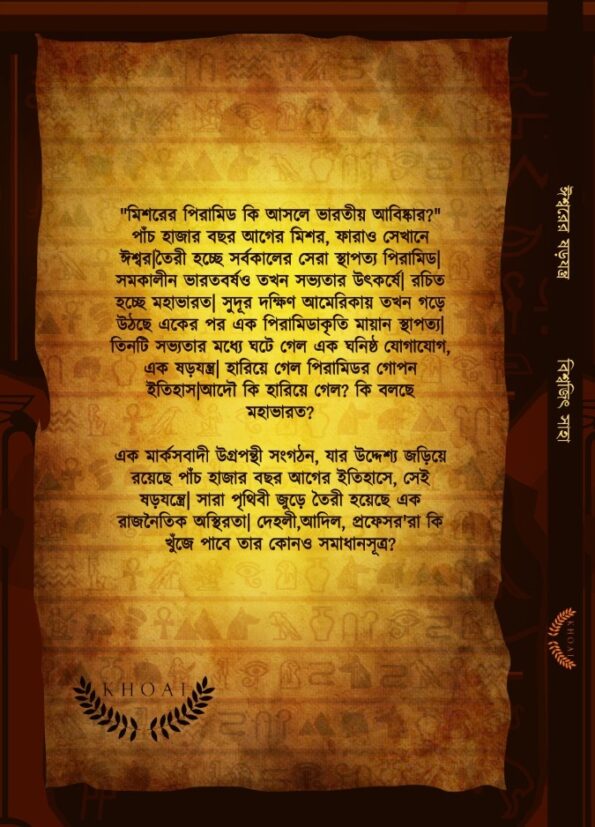 "মিশরের পিরামিড কি আসলে ভারতীয় আবিষ্কার?"
পাঁচ হাজার বছর আগের মিশর, ফারাও সেখানে
ঈশ্বর|তৈরী হচ্ছে সর্বকালের সেরা স্থাপত্য পিরামিড|
সমকালীন ভারতবর্ষও তখন সভ্যতার উৎকর্ষে| রচিত
হচ্ছে মহাভারত| সুদূর দক্ষিণ আমেরিকায় তখন গড়ে
উঠছে একের পর এক পিরামিডাকৃতি মায়ান স্থাপত্য|
তিনটি সভ্যতার মধ্যে ঘটে গেল এক ঘনিষ্ঠ যোগাযোগ,
এক ষড়যন্ত্র| হারিয়ে গেল পিরামিডর গোপন
ইতিহাস|আদৌ কি হারিয়ে গেল? কি বলছে
মহাভারত?
এক মার্কসবাদী উগ্রপন্থী সংগঠন, যার উদ্দেশ্য জড়িয়ে
রয়েছে পাঁচ হাজার বছর আগের ইতিহাসে, সেই
ষড়যন্ত্রে| সারা পৃথিবী জুড়ে তৈরী হয়েছে এক
রাজনৈতিক অস্থিরতা| দেহলী,আদিল, প্রফেসর'রা কি
খুঁজে পাবে তার কোনও সমাধানসূত্র?
KHOAI
ঈশ্বরের ষড়যন্ত্র
বিশ্বজিৎ সাহা
KHOAI